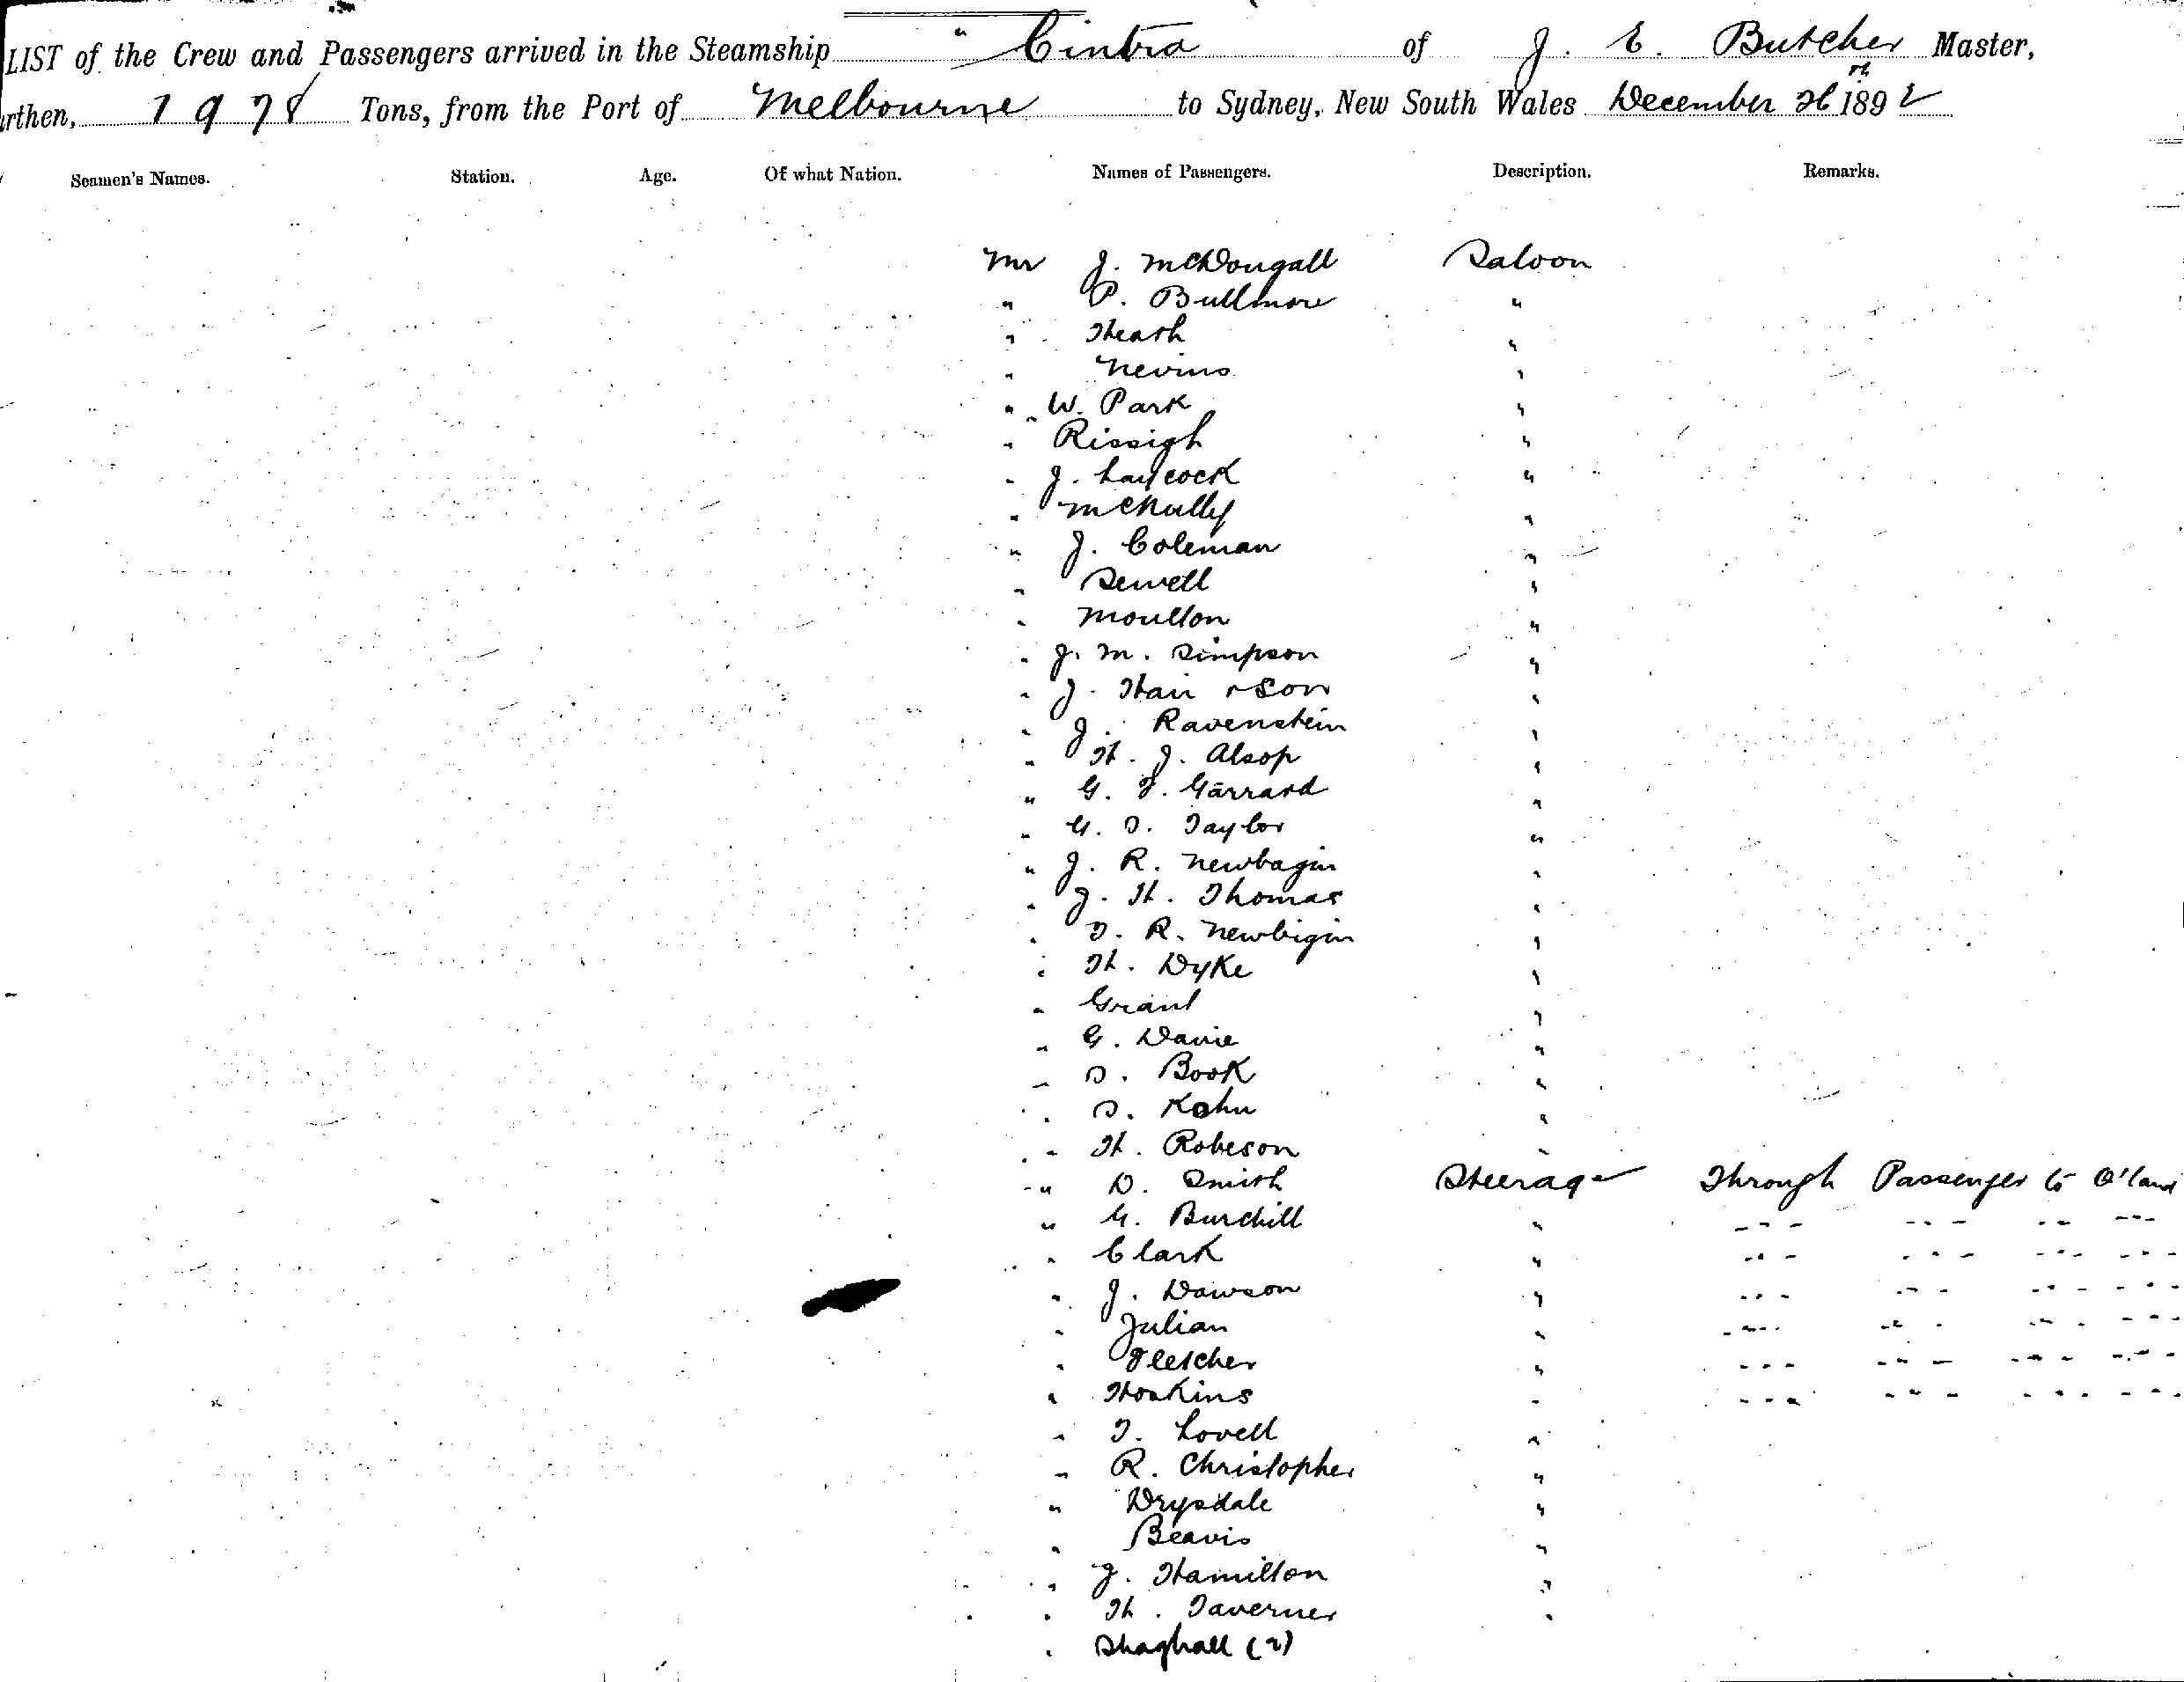 LIST of the Crew and Passengers arrived in the Steamship "Cintra of J. E. Butcher Master,
rthen, 1978 Tons, from the Port of Melbourne to Sydney, New South Wales December 26th 1892
Seamen's Names. Station. Age. Of what Nation. Names of Passengers. Description. Remarks.
Mr J. McDougall Saloon
" P. Bullmore "
" Heath "
" Nevins "
" W. Park "
" Rissigh "
" J. Laycock "
" McNully "
" J. Coleman "
" Sewell "
" Moulton "
" J. M. Simpson "
" J. Hair & Son "
" J. Ravenstein "
" H. J. Alsop "
" G. F. Garrard "
" G. S. Taylor "
" J. R. Newbagin "
" J. H. Thomas "
" T. R. Newbigin "
" H. Dyke "
" Grant "
" G. Davie "
" S. Book "
" S. Kohn "
" H. Robeson "
" D. Smith Steerage Through Passenger to Q'land
" G. Burchill " - - - - - - - - - - -
" Clark " - - - - - - - - - - - -
" J. Dawson " - - - - - - - - - - - -
" Julian " - - - - - - - - - - - -
" Fletcher " - - - - - - - - - - - -
" Hoskins " - - - - - - - - - - - -
" T. Lovell "
" R. Christopher "
" Drysdale "
" Beavis "
" J. Hamilton "
" H. Taverner "
" Shaghall (2)